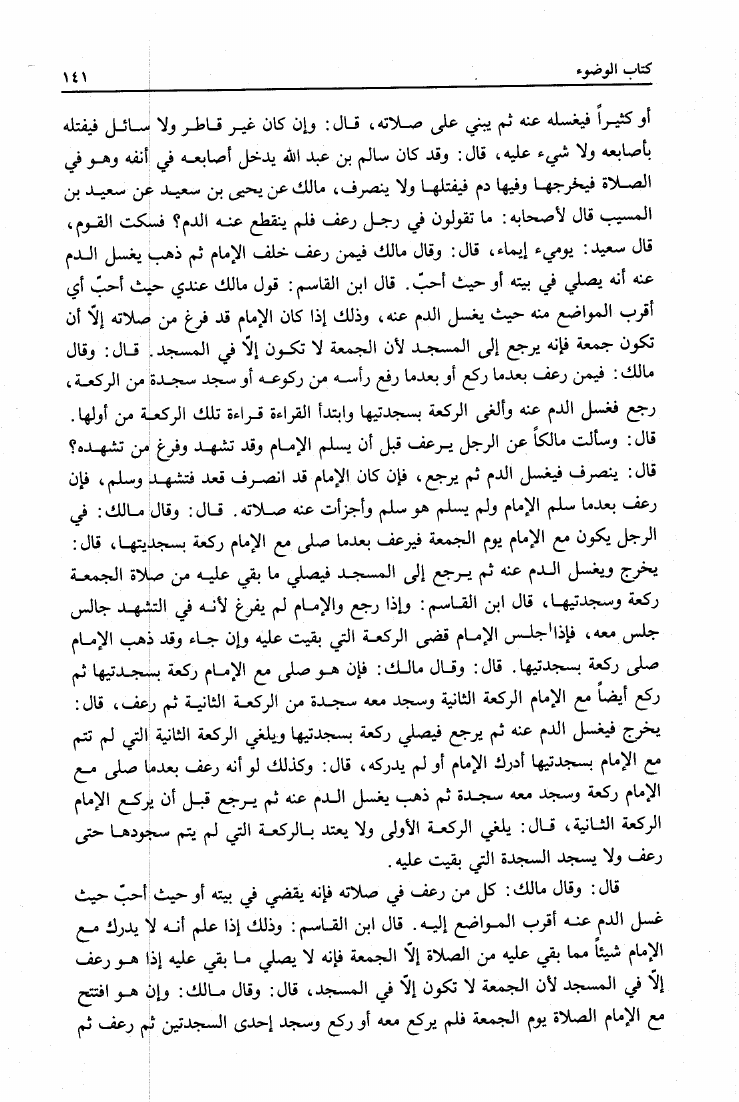 كتاب الوضوء ١٤١
أو كثيراً فيغسله عنه ثم يبني على صلاته، قال: وإن كان غير قاطر ولا سائل فيفتله
بأصابعه ولا شيء عليه، قال: وقد كان سالم بن عبد الله يدخل أصابعه في أنفه وهو في
الصلاة فيخرجها وفيها دم فيفتلها ولا ينصرف، مالك عن يحيى بن سعيد عن سعيد بن
المسيب قال لأصحابه: ما تقولون في رجل رعف فلم ينقطع عنه الدم؟ فسكت القوم،
قال سعيد: يوميء إيماء، قال: وقال مالك فيمن رعف خلف الإمام ثم ذهب يغسل الدم
عنه أنه يصلي في بيته أو حيث أحبّ. قال ابن القاسم: قول مالك عندي حيث أحبّ أي
أقرب المواضع منه حيث يغسل الدم عنه، وذلك إذا كان الإمام قد فرغ من صلاته إلّا أن
تكون جمعة فإنه يرجع إلى المسجد لأن الجمعة لا تكون إلّا في المسجد. قال: وقال
مالك: فيمن رعف بعدما ركع أو بعدما رفع رأسه من ركوعه أو سجد سجدة من الركعة،
رجع فغسل الدم عنه وألغى الركعة بسجدتيها وابتدأ القراءة قراءة تلك الركعة من أولها.
قال: وسألت مالكاً عن الرجل يرعف قبل أن يسلم الإمام وقد تشهد وفرغ من تشهده؟
قال: ينصرف فيغسل الدم ثم يرجع، فإن كان الإمام قد انصرف قعد فتشهد وسلم، فإن
رعف بعدما سلم الإمام ولم يسلم هو سلم وأجزأت عنه صلاته. قال: وقال مالك: في
الرجل يكون مع الإمام يوم الجمعة فيرعف بعدما صلى مع الإمام ركعة بسجديتها، قال:
يخرج ويغسل الدم عنه ثم يرجع إلى المسجد فيصلي ما بقي عليه من صلاة الجمعة
ركعة وسجدتيها، قال ابن القاسم: وإذا رجع والإمام لم يفرغ لأنه في التشهد جالس
جلس معه، فإذا جلس الإمام قضى الركعة التي بقيت عليه وإن جاء وقد ذهب الإمام
صلى ركعة بسجدتيها. قال: وقال مالك: فإن هو صلى مع الإمام ركعة بسجدتيها ثم
ركع أيضاً مع الإمام الركعة الثانية وسجد معه سجدة من الركعة الثانية ثم رعف، قال:
يخرج فيغسل الدم عنه ثم يرجع فيصلي ركعة بسجدتيها ويلغي الركعة الثانية التي لم تتم
مع الإمام بسجدتيها أدرك الإمام أو لم يدركه، قال: وكذلك لو أنه رعف بعدما صلى مع
الإمام ركعة وسجد معه سجدة ثم ذهب يغسل الدم عنه ثم يرجع قبل أن يركع الإمام
الركعة الثانية، قال: يلغي الركعة الأولى ولا يعتد بالركعة التي لم يتم سجودها حتى
رعف ولا يسجد السجدة التي بقيت عليه.
قال: وقال مالك: كل من رعف في صلاته فإنه يقضي في بيته أو حيث أحبّ حيث
غسل الدم عنه أقرب المواضع إليه. قال ابن القاسم: وذلك إذا علم أنه لا يدرك مع
الإمام شيئاً مما بقي عليه من الصلاة إلّا الجمعة فإنه لا يصلي ما بقي عليه إذا هو رعف
إلّا في المسجد لأن الجمعة لا تكون إلّا في المسجد، قال: وقال مالك: وإن هو افتتح
مع الإمام الصلاة يوم الجمعة فلم يركع معه أو ركع وسجد إحدى السجدتين ثم رعف ثم